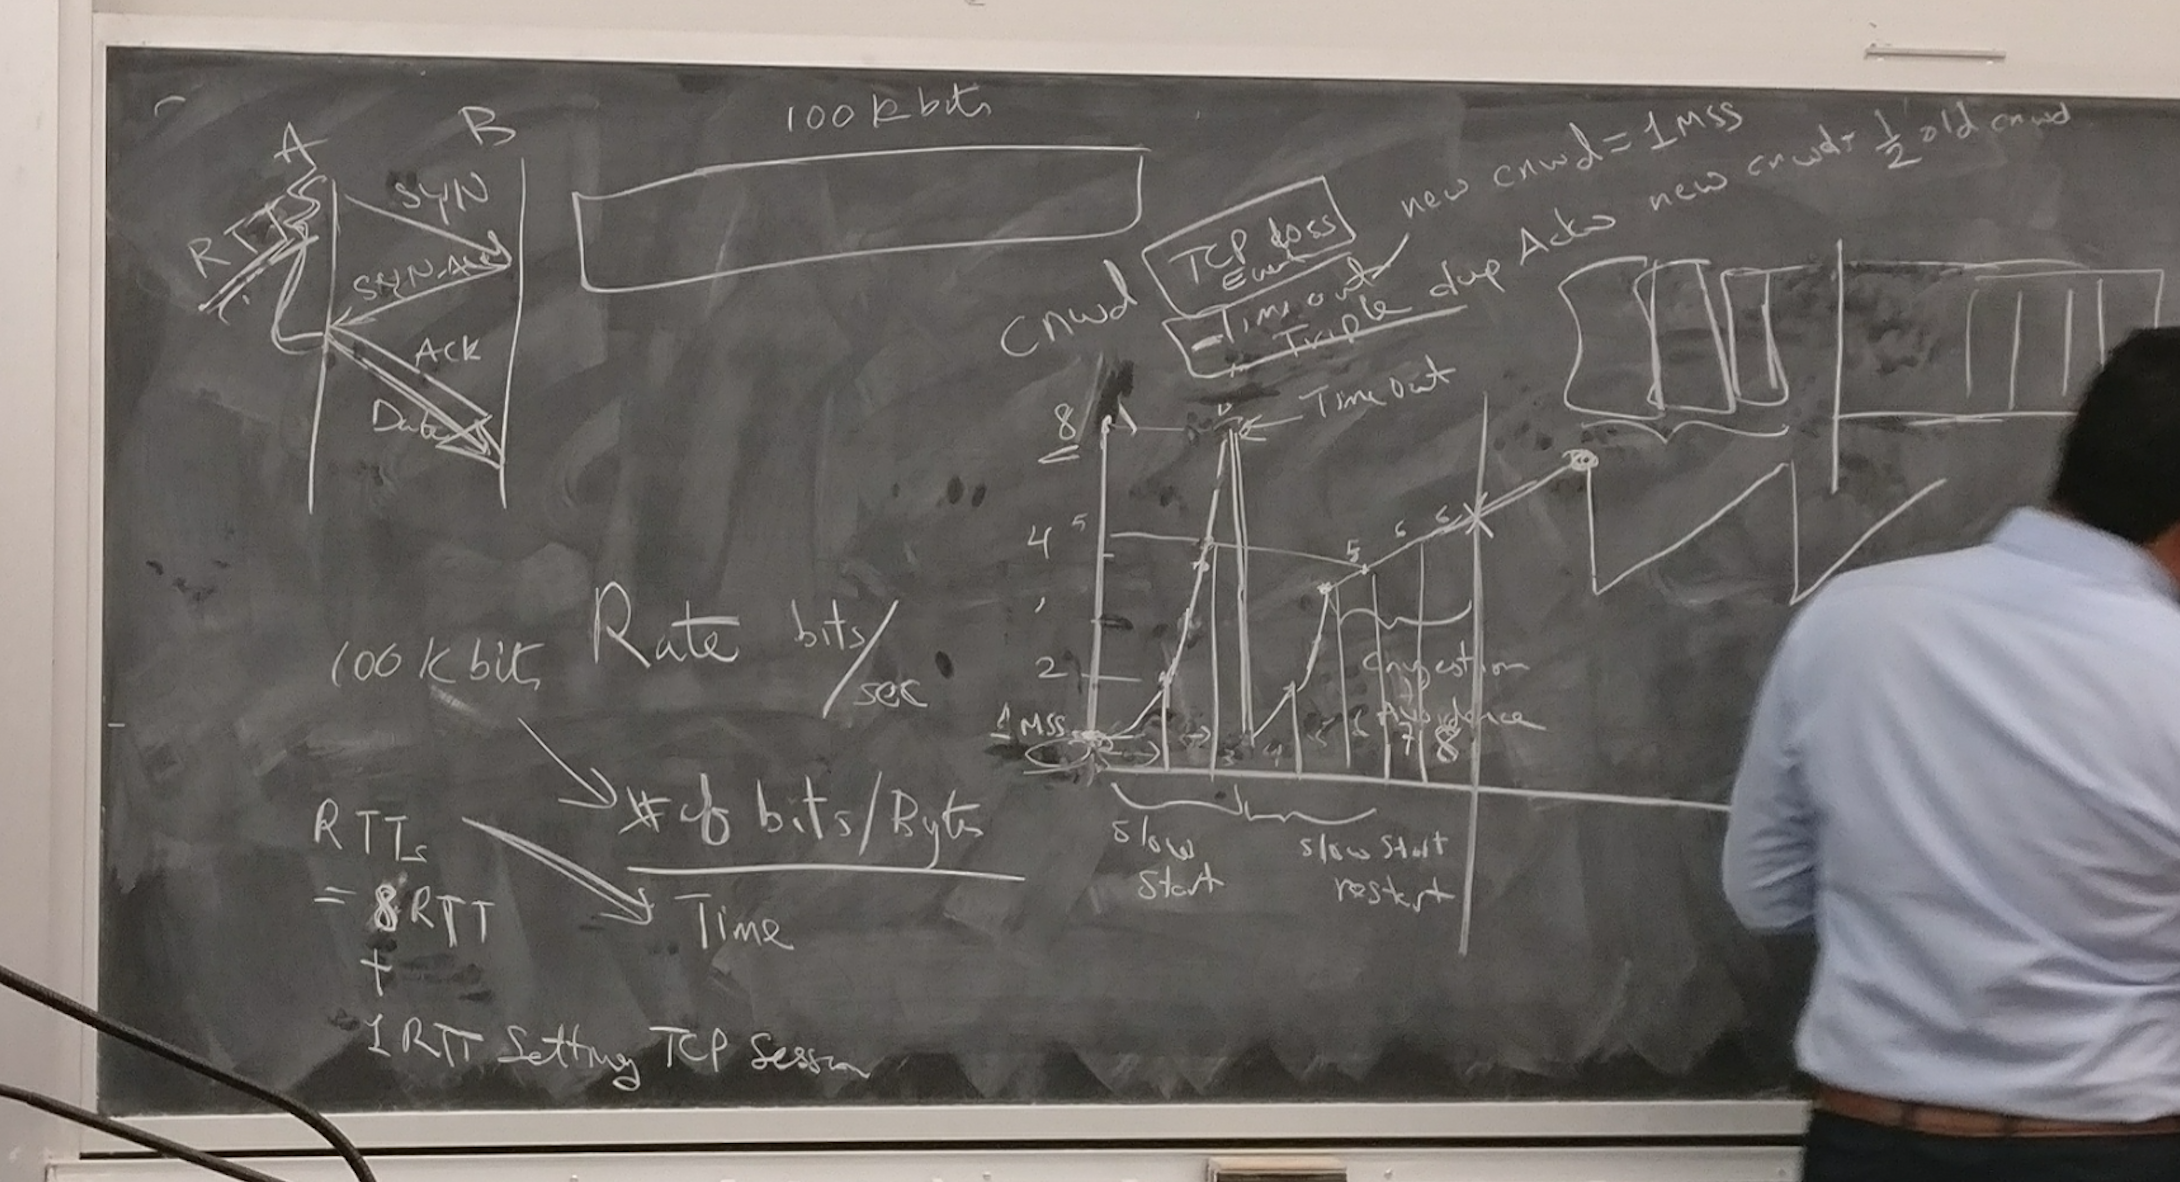 A
B
SYN
RTT
SYN-Ack
Ack
Data
100 k bits
TCP Loss
Event
- Time out
Triple dup Acks
new cnwd = 1 MSS
new cnwd = 1/2 old cnwd
cnwd
Time out
8
4
5
2
1 MSS
5
6
6
3
4
6
7
8
Congestion
Avoidance
Slow
Start
slow start
restart
100 k bits
Rate bits/sec
# of bits/Bytes
Time
RTTs
= 8 RTT
+
1 RTT Setting TCP Session